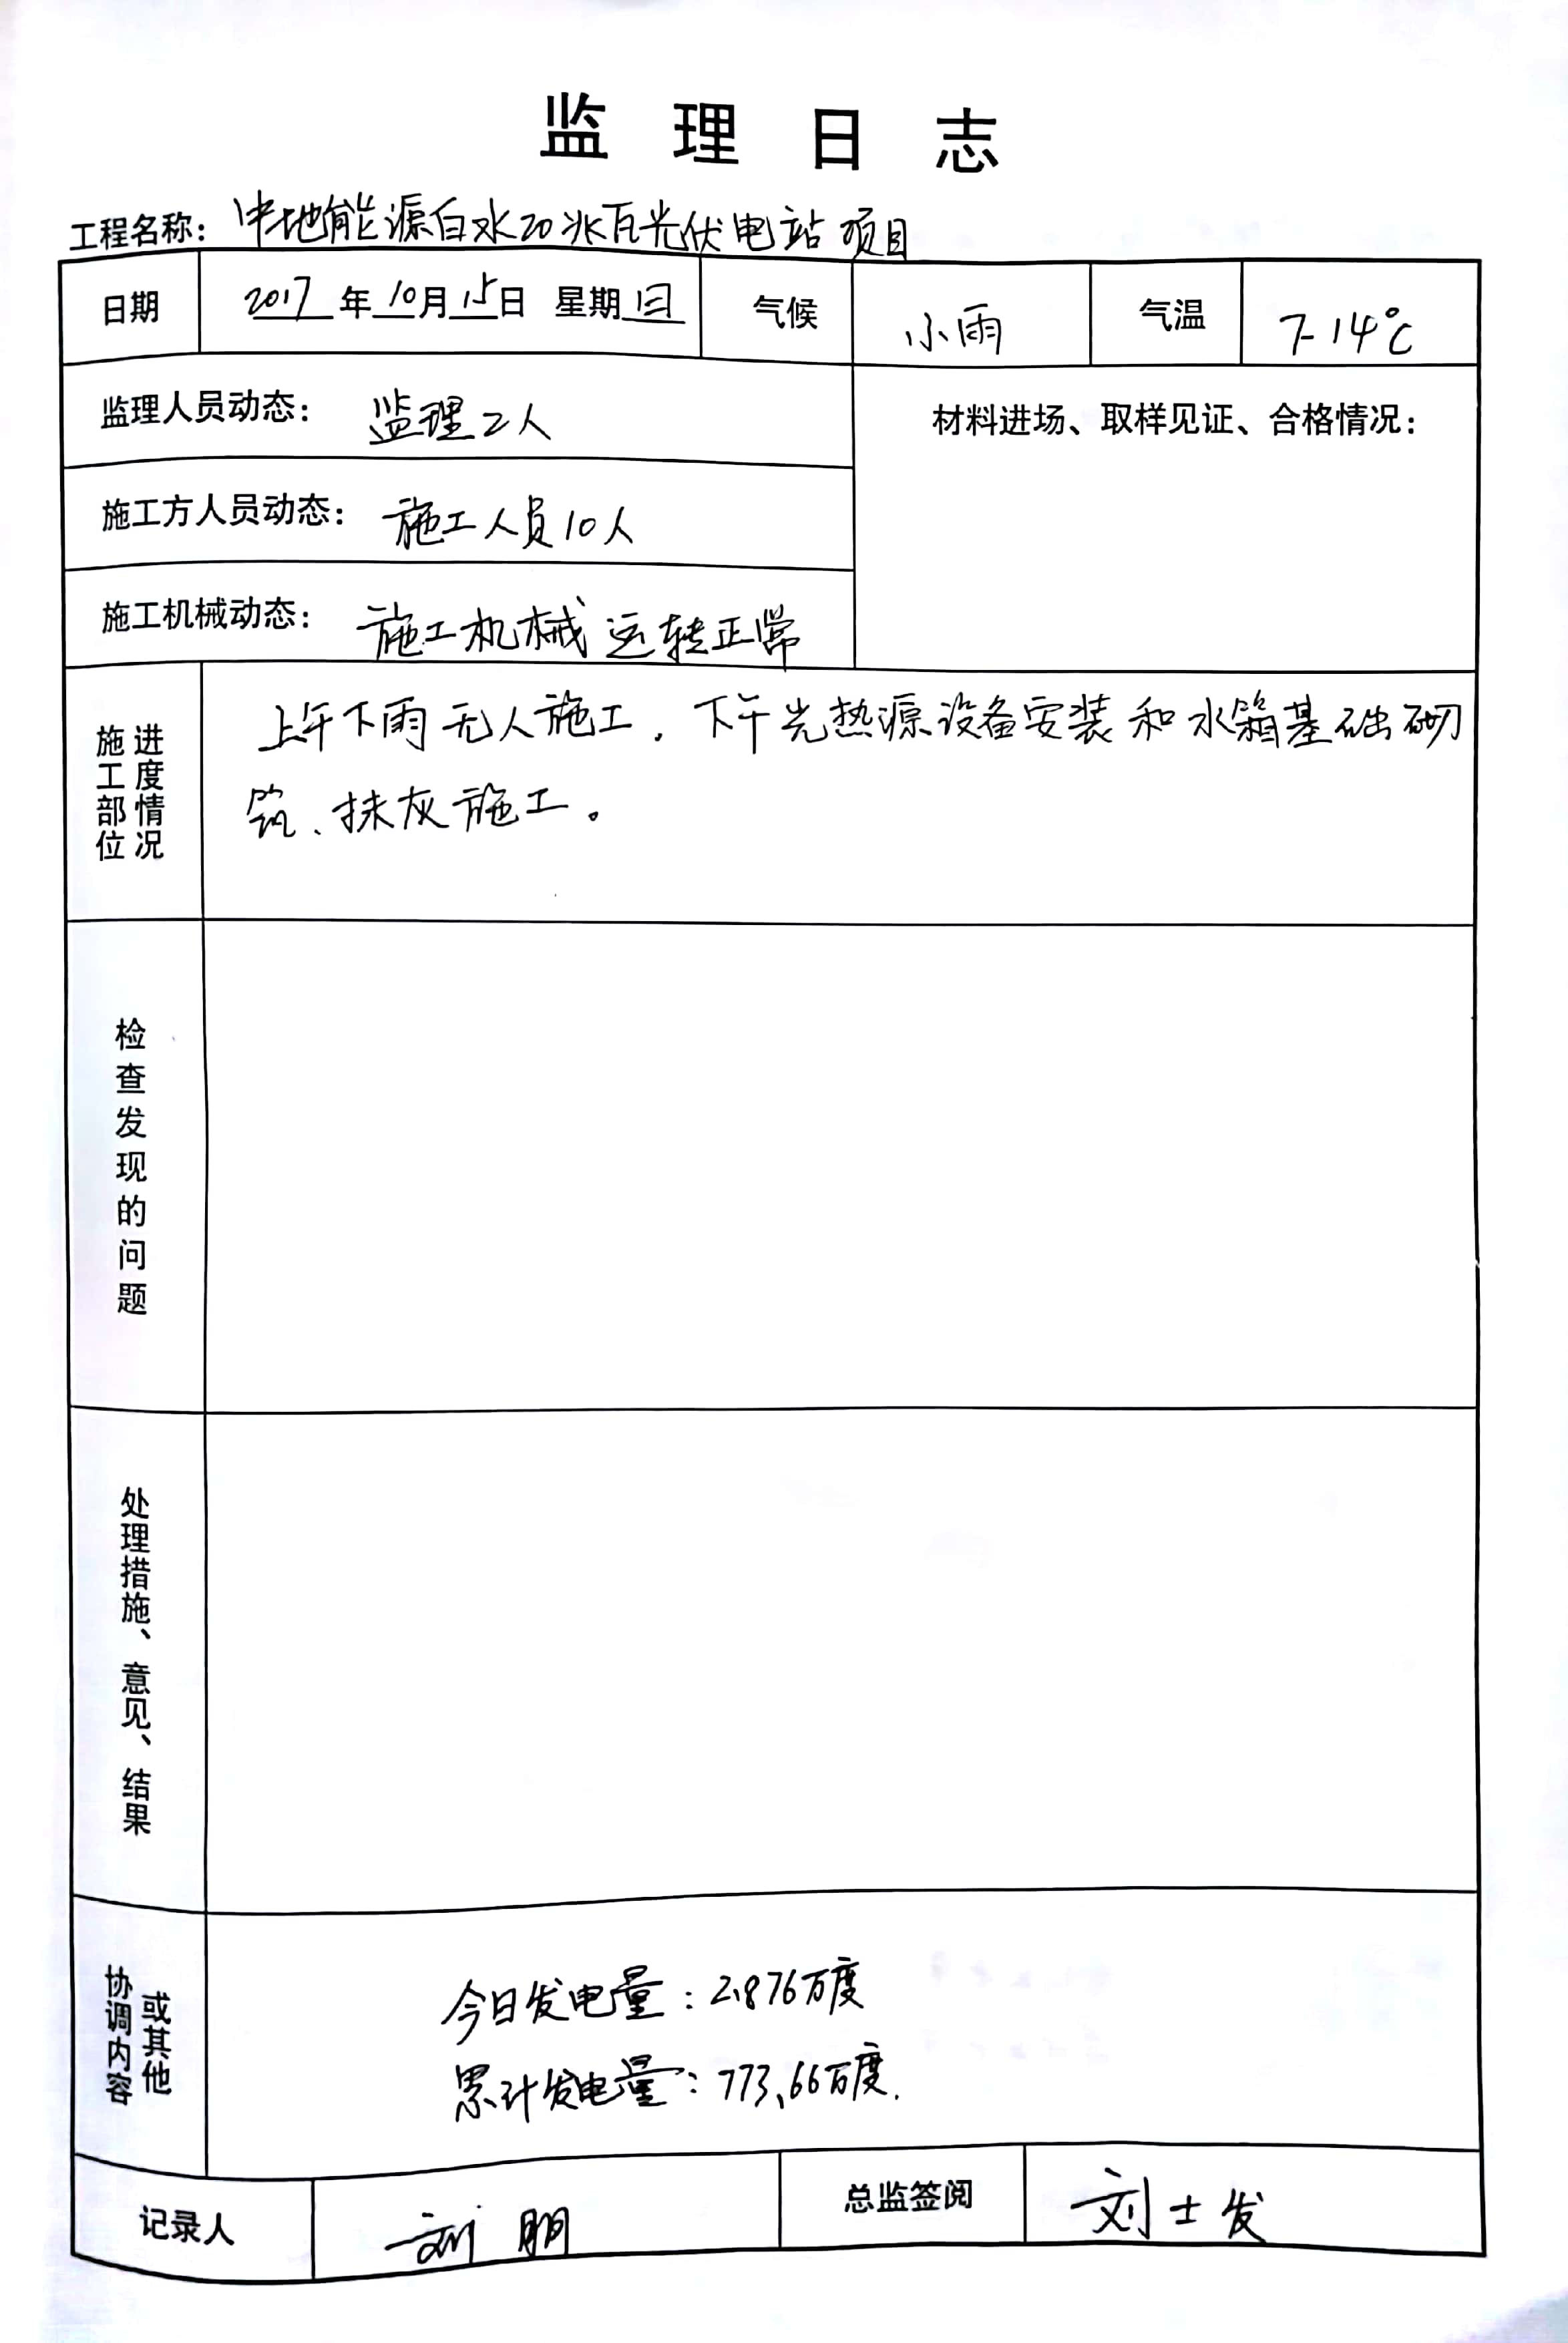 监理日志
工程名称：中地能源白水20兆瓦光伏电站项目
日期 2017年10月15日 星期日 气候 小雨 气温 7-14℃
监理人员动态：监理2人 材料进场、取样见证、合格情况：
施工方人员动态：施工人员10人
施工机械动态：施工机械运转正常
施工部位
进度情况
上午下雨无人施工，下午光热源设备安装和水箱基础砌
筑、抹灰施工。
检查发现的问题
处理措施、意见、结果
协调内容
或其他
今日发电量：2.876万度
累计发电量：773.66万度.
记录人 刘朋 总监签阅 刘士发